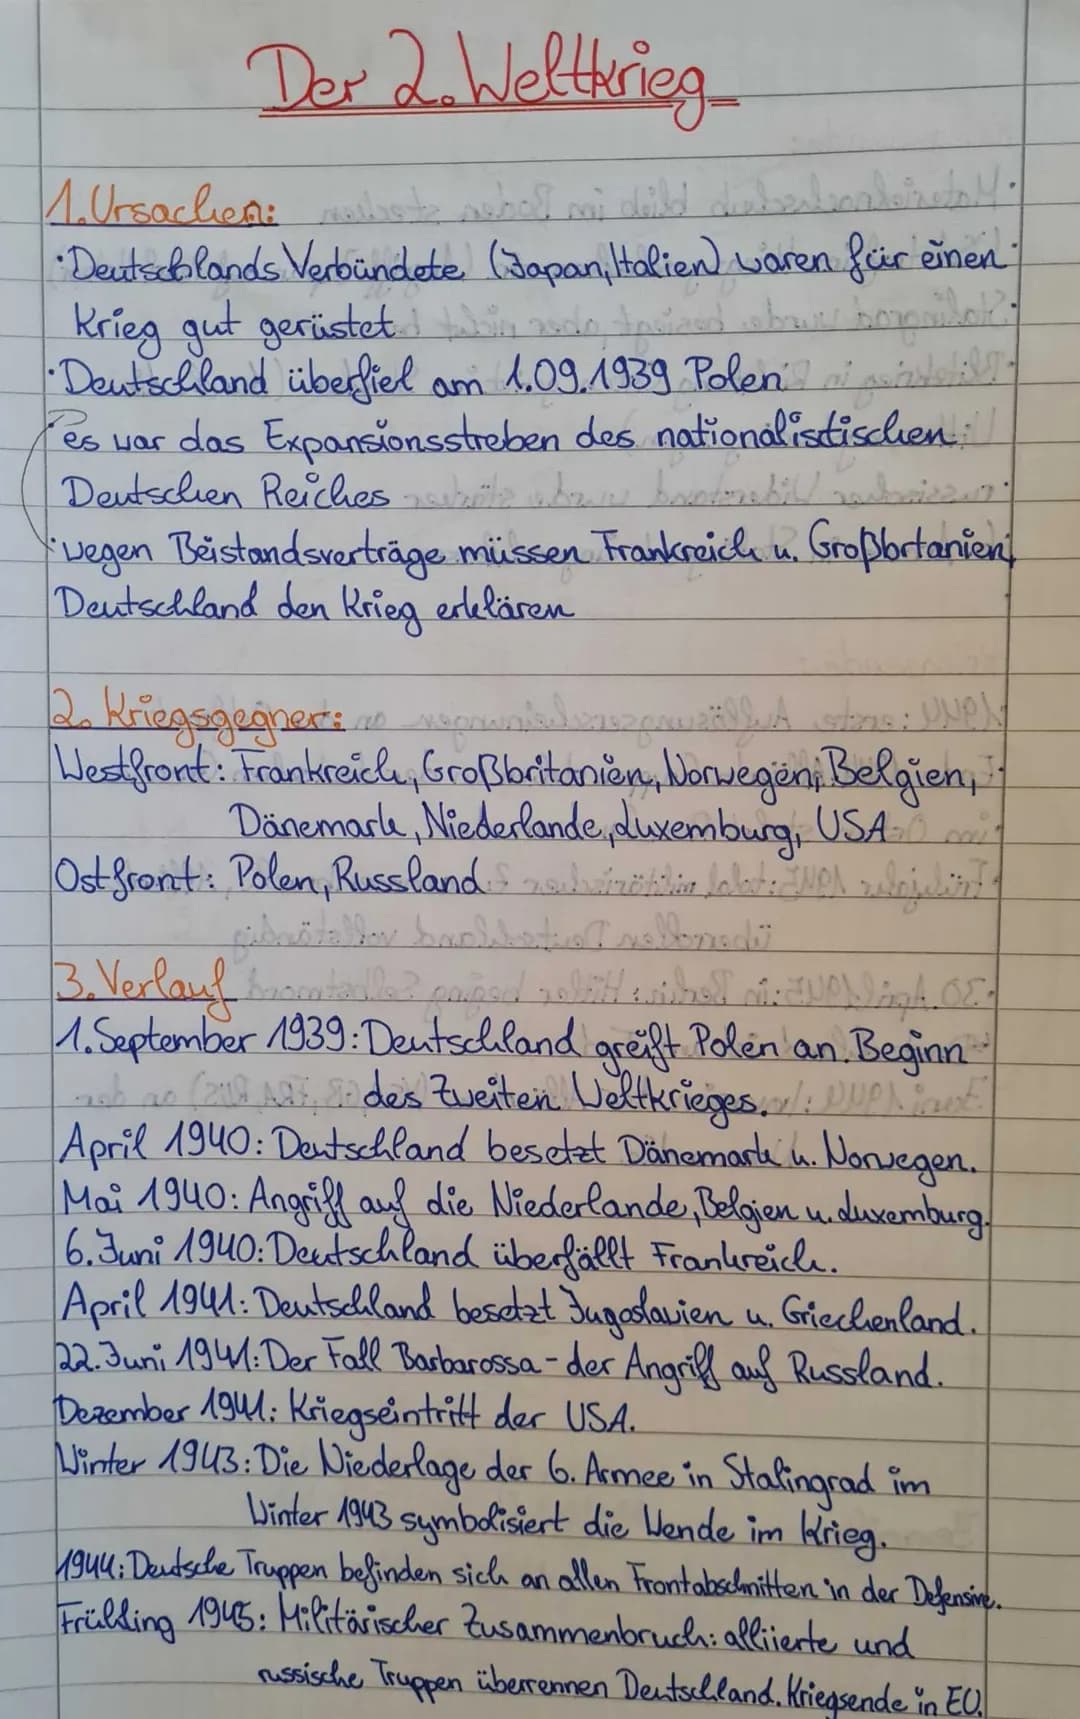 Der 2. Weltkrieg
1. Ursachen:
· Deutschlands Verbündete (Japan, Italien) waren für einen
Krieg gut gerüstet
· Deutschland überfiel am 1.09.1939 Polen
es war das Expansionsstreben des nationalistischen
Deutschen Reiches
· wegen Beistandsverträge müssen Frankreich u. Großbrtanien
Deutschland den Krieg erklären
2. Kriegsgegner:
Westfront: Frankreich, Großbritanien, Norwegen, Belgien,
Dänemark, Niederlande, Luxemburg, USA
Ostfront: Polen, Russland
3. Verlauf
1. September 1939: Deutschland greift Polen an. Beginn
des Zweiten Weltkrieges.
April 1940: Deutschland besetzt Dänemark u. Norwegen.
Mai 1940: Angriff auf die Niederlande, Belgien u. Luxemburg.
6. Juni 1940: Deutschland überfällt Frankreich.
April 1941: Deutschland besetzt Jugoslavien u. Griechenland.
22. Juni 1941: Der Fall Barbarossa - der Angriff auf Russland.
Dezember 1941: Kriegseintritt der USA.
Winter 1943: Die Niederlage der 6. Armee in Stalingrad im
Winter 1943 symbolisiert die Wende im Krieg.
1944: Deutsche Truppen befinden sich an allen Frontabschnitten in der Defensive.
Frühling 1945: Militärischer Zusammenbruch: alliierte und
russische Truppen überrennen Deutschland. Kriegsende in EU.